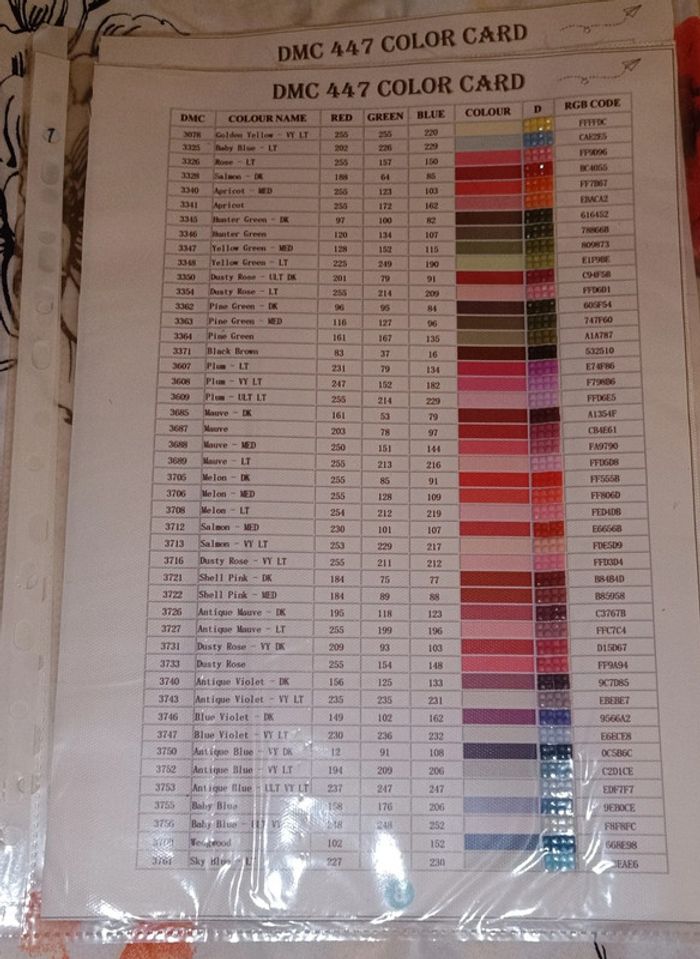 DMC 447 COLOR CARD
DMC 447 COLOR CARD
DMC COLOUR NAME RED GREEN BLUE COLOUR D RGB CODE
3078 Golden Yellow - VY LT 255 255 220 FFFFDC
3325 Baby Blue - LT 202 226 229 CAE2E5
3326 Rose - LT 255 157 150 FF9D96
3328 Salmon - DK 188 64 85 BC4055
3340 Apricot - MED 255 123 103 FF7B67
3341 Apricot 255 172 162 EBACA2
3345 Hunter Green - DK 97 100 82 616452
3346 Hunter Green 120 134 107 78866B
3347 Yellow Green - MED 128 152 115 809873
3348 Yellow Green - LT 225 249 190 E1F9BE
3350 Dusty Rose - ULT DK 201 79 91 C94F5B
3354 Dusty Rose - LT 255 214 209 FFD6D1
3362 Pine Green - DK 96 95 84 605F54
3363 Pine Green - MED 116 127 96 747F60
3364 Pine Green 161 167 135 A1A787
3371 Black Brown 83 37 16 532510
3607 Plum - LT 231 79 134 E74F86
3608 Plum - VY LT 247 152 182 F798B6
3609 Plum - ULT LT 255 214 229 FFD6E5
3685 Mauve - DK 161 53 79 A1354F
3687 Mauve 203 78 97 CB4E61
3688 Mauve - MED 250 151 144 FA9790
3689 Mauve - LT 255 213 216 FFD5D8
3705 Melon - DK 255 85 91 FF555B
3706 Melon - MED 255 128 109 FF806D
3708 Melon - LT 254 212 219 FED4DB
3712 Salmon - MED 230 101 107 E6656B
3713 Salmon - VY LT 253 229 217 FDE5D9
3716 Dusty Rose - VY LT 255 211 212 FFD3D4
3721 Shell Pink - DK 184 75 77 B84B4D
3722 Shell Pink - MED 184 89 88 B85958
3726 Antique Mauve - DK 195 118 123 C3767B
3727 Antique Mauve - LT 255 199 196 FFC7C4
3731 Dusty Rose - VY DK 209 93 103 D15D67
3733 Dusty Rose 255 154 148 FF9A94
3740 Antique Violet - DK 156 125 133 9C7D85
3743 Antique Violet - VY LT 235 235 231 EBEBE7
3746 Blue Violet - DK 149 102 162 9566A2
3747 Blue Violet - VY LT 230 236 232 E6ECE8
3750 Antique Blue - VY DK 12 91 108 0C5B6C
3752 Antique Blue - VY LT 194 209 206 C2D1CE
3753 Antique Blue - ULT VY LT 237 247 247 EDF7F7
3755 Baby Blue 158 176 206 9EB0CE
3756 Baby Blue - ULT 248 248 252 F8F8FC
Wedgwood 102 152 668E98
3761 Sky Blue - LT 227 230